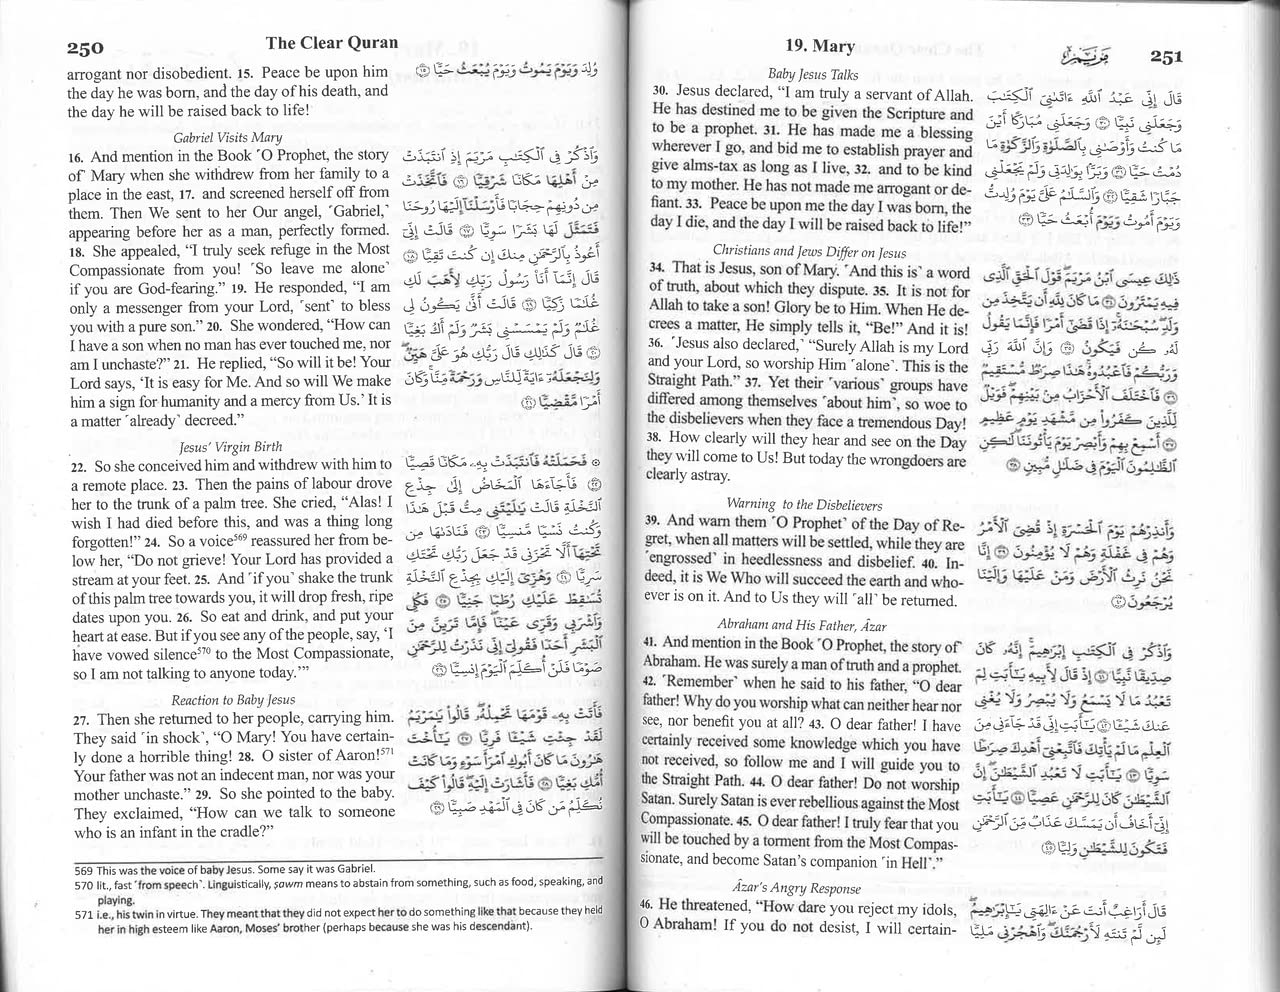 250
The Clear Quran
arrogant nor disobedient. 15. Peace be upon him
the day he was born, and the day of his death, and
the day he will be raised back to life!
وُلِدَ وَيَوْمَ يَمُوتُ وَيَوْمَ يُبْعَثُ حَيًّا ١٥
Gabriel Visits Mary
16. And mention in the Book ˹O Prophet, the story
of˺ Mary when she withdrew from her family to a
place in the east, 17. and screened herself off from
them. Then We sent to her Our angel, ˹Gabriel,˺
appearing before her as a man, perfectly formed.
18. She appealed, “I truly seek refuge in the Most
Compassionate from you! ˹So leave me alone˺
if you are God-fearing.” 19. He responded, “I am
only a messenger from your Lord, ˹sent˺ to bless
you with a pure son.” 20. She wondered, “How can
I have a son when no man has ever touched me, nor
am I unchaste?” 21. He replied, “So will it be! Your
Lord says, ‘It is easy for Me. And so will We make
him a sign for humanity and a mercy from Us.’ It is
a matter ˹already˺ decreed.”
وَٱذْكُرْ فِى ٱلْكِتَـٰبِ مَرْيَمَ إِذِ ٱنتَبَذَتْ
مِنْ أَهْلِهَا مَكَانًا شَرْقِيًّا ١٦ فَٱتَّخَذَتْ
مِن دُونِهِمْ حِجَابًا فَأَرْسَلْنَآ إِلَيْهَا رُوحَنَا
فَتَمَثَّلَ لَهَا بَشَرًا سَوِيًّا ١٧ قَالَتْ إِنِّىٓ
أَعُوذُ بِٱلرَّحْمَـٰنِ مِنكَ إِن كُنتَ تَقِيًّا ١٨
قَالَ إِنَّمَآ أَنَا۠ رَسُولُ رَبِّكِ لِأَهَبَ لَكِ
غُلَـٰمًا زَكِيًّا ١٩ قَالَتْ أَنَّىٰ يَكُونُ لِى
غُلَـٰمٌ وَلَمْ يَمْسَسْنِى بَشَرٌ وَلَمْ أَكُ بَغِيًّا
٢٠ قَالَ كَذَٰلِكِ قَالَ رَبُّكِ هُوَ عَلَىَّ هَيِّنٌ
وَلِنَجْعَلَهُۥٓ ءَايَةً لِّلنَّاسِ وَرَحْمَةً مِّنَّا وَكَانَ
أَمْرًا مَّقْضِيًّا ٢١
Jesus’ Virgin Birth
22. So she conceived him and withdrew with him to
a remote place. 23. Then the pains of labour drove
her to the trunk of a palm tree. She cried, “Alas! I
wish I had died before this, and was a thing long
forgotten!” 24. So a voice569 reassured her from be-
low her, “Do not grieve! Your Lord has provided a
stream at your feet. 25. And ˹if you˺ shake the trunk
of this palm tree towards you, it will drop fresh, ripe
dates upon you. 26. So eat and drink, and put your
heart at ease. But if you see any of the people, say, ‘I
have vowed silence570 to the Most Compassionate,
so I am not talking to anyone today.’”
۞ فَحَمَلَتْهُ فَٱنتَبَذَتْ بِهِۦ مَكَانًا قَصِيًّا
٢٢ فَأَجَآءَهَا ٱلْمَخَاضُ إِلَىٰ جِذْعِ
ٱلنَّخْلَةِ قَالَتْ يَـٰلَيْتَنِى مِتُّ قَبْلَ هَـٰذَا
وَكُنتُ نَسْيًا مَّنسِيًّا ٢٣ فَنَادَىٰهَا مِن
تَحْتِهَآ أَلَّا تَحْزَنِى قَدْ جَعَلَ رَبُّكِ تَحْتَكِ
سَرِيًّا ٢٤ وَهُزِّىٓ إِلَيْكِ بِجِذْعِ ٱلنَّخْلَةِ
تُسَـٰقِطْ عَلَيْكِ رُطَبًا جَنِيًّا ٢٥ فَكُلِى
وَٱشْرَبِى وَقَرِّى عَيْنًا فَإِمَّا تَرَيِنَّ مِنَ
ٱلْبَشَرِ أَحَدًا فَقُولِىٓ إِنِّى نَذَرْتُ لِلرَّحْمَـٰنِ
صَوْمًا فَلَنْ أُكَلِّمَ ٱلْيَوْمَ إِنسِيًّا ٢٦
Reaction to Baby Jesus
27. Then she returned to her people, carrying him.
They said ˹in shock˺, “O Mary! You have certain-
ly done a horrible thing! 28. O sister of Aaron!571
Your father was not an indecent man, nor was your
mother unchaste.” 29. So she pointed to the baby.
They exclaimed, “How can we talk to someone
who is an infant in the cradle?”
فَأَتَتْ بِهِۦ قَوْمَهَا تَحْمِلُهُۥ قَالُوا۟ يَـٰمَرْيَمُ
لَقَدْ جِئْتِ شَيْـًٔا فَرِيًّا ٢٧ يَـٰٓأُخْتَ
هَـٰرُونَ مَا كَانَ أَبُوكِ ٱمْرَأَ سَوْءٍ وَمَا كَانَتْ
أُمُّكِ بَغِيًّا ٢٨ فَأَشَارَتْ إِلَيْهِ قَالُوا۟ كَيْفَ
نُكَلِّمُ مَن كَانَ فِى ٱلْمَهْدِ صَبِيًّا ٢٩
569 This was the voice of baby Jesus. Some say it was Gabriel.
570 lit., fast ˹from speech˺. Linguistically, ṣawm means to abstain from something, such as food, speaking, and
playing.
571 i.e., his twin in virtue. They meant that they did not expect her to do something like that because they held
her in high esteem like Aaron, Moses’ brother (perhaps because she was his descendant).
19. Mary
مَرْيَم
251
Baby Jesus Talks
30. Jesus declared, “I am truly a servant of Allah.
He has destined me to be given the Scripture and
to be a prophet. 31. He has made me a blessing
wherever I go, and bid me to establish prayer and
give alms-tax as long as I live, 32. and to be kind
to my mother. He has not made me arrogant or de-
fiant. 33. Peace be upon me the day I was born, the
day I die, and the day I will be raised back to life!”
قَالَ إِنِّى عَبْدُ ٱللَّهِ ءَاتَىٰنِىَ ٱلْكِتَـٰبَ
وَجَعَلَنِى نَبِيًّا ٣٠ وَجَعَلَنِى مُبَارَكًا أَيْنَ
مَا كُنتُ وَأَوْصَـٰنِى بِٱلصَّلَوٰةِ وَٱلزَّكَوٰةِ مَا
دُمْتُ حَيًّا ٣١ وَبَرًّۢا بِوَٰلِدَتِى وَلَمْ يَجْعَلْنِى
جَبَّارًا شَقِيًّا ٣٢ وَٱلسَّلَـٰمُ عَلَىَّ يَوْمَ وُلِدتُّ
وَيَوْمَ أَمُوتُ وَيَوْمَ أُبْعَثُ حَيًّا ٣٣
Christians and Jews Differ on Jesus
34. That is Jesus, son of Mary. ˹And this is˺ a word
of truth, about which they dispute. 35. It is not for
Allah to take a son! Glory be to Him. When He de-
crees a matter, He simply tells it, “Be!” And it is!
36. ˹Jesus also declared,˺ “Surely Allah is my Lord
and your Lord, so worship Him ˹alone˺. This is the
Straight Path.” 37. Yet their ˹various˺ groups have
differed among themselves ˹about him˺, so woe to
the disbelievers when they face a tremendous Day!
38. How clearly will they hear and see on the Day
they will come to Us! But today the wrongdoers are
clearly astray.
ذَٰلِكَ عِيسَى ٱبْنُ مَرْيَمَ قَوْلَ ٱلْحَقِّ ٱلَّذِى
فِيهِ يَمْتَرُونَ ٣٤ مَا كَانَ لِلَّهِ أَن يَتَّخِذَ مِن
وَلَدٍ سُبْحَـٰنَهُۥٓ إِذَا قَضَىٰٓ أَمْرًا فَإِنَّمَا يَقُولُ
لَهُۥ كُن فَيَكُونُ ٣٥ وَإِنَّ ٱللَّهَ رَبِّى
وَرَبُّكُمْ فَٱعْبُدُوهُ هَـٰذَا صِرَٰطٌ مُّسْتَقِيمٌ
٣٦ فَٱخْتَلَفَ ٱلْأَحْزَابُ مِنۢ بَيْنِهِمْ فَوَيْلٌ
لِّلَّذِينَ كَفَرُوا۟ مِن مَّشْهَدِ يَوْمٍ عَظِيمٍ
٣٧ أَسْمِعْ بِهِمْ وَأَبْصِرْ يَوْمَ يَأْتُونَنَا لَـٰكِنِ
ٱلظَّـٰلِمُونَ ٱلْيَوْمَ فِى ضَلَـٰلٍ مُّبِينٍ ٣٨
Warning to the Disbelievers
39. And warn them ˹O Prophet˺ of the Day of Re-
gret, when all matters will be settled, while they are
˹engrossed˺ in heedlessness and disbelief. 40. In-
deed, it is We Who will succeed the earth and who-
ever is on it. And to Us they will ˹all˺ be returned.
وَأَنذِرْهُمْ يَوْمَ ٱلْحَسْرَةِ إِذْ قُضِىَ ٱلْأَمْرُ
وَهُمْ فِى غَفْلَةٍ وَهُمْ لَا يُؤْمِنُونَ ٣٩ إِنَّا
نَحْنُ نَرِثُ ٱلْأَرْضَ وَمَنْ عَلَيْهَا وَإِلَيْنَا
يُرْجَعُونَ ٤٠
Abraham and His Father, Âzar
41. And mention in the Book ˹O Prophet, the story of˺
Abraham. He was surely a man of truth and a prophet.
42. ˹Remember˺ when he said to his father, “O dear
father! Why do you worship what can neither hear nor
see, nor benefit you at all? 43. O dear father! I have
certainly received some knowledge which you have
not received, so follow me and I will guide you to
the Straight Path. 44. O dear father! Do not worship
Satan. Surely Satan is ever rebellious against the Most
Compassionate. 45. O dear father! I truly fear that you
will be touched by a torment from the Most Compas-
sionate, and become Satan’s companion ˹in Hell˺.”
وَٱذْكُرْ فِى ٱلْكِتَـٰبِ إِبْرَٰهِيمَ إِنَّهُۥ كَانَ
صِدِّيقًا نَّبِيًّا ٤١ إِذْ قَالَ لِأَبِيهِ يَـٰٓأَبَتِ لِمَ
تَعْبُدُ مَا لَا يَسْمَعُ وَلَا يُبْصِرُ وَلَا يُغْنِى
عَنكَ شَيْـًٔا ٤٢ يَـٰٓأَبَتِ إِنِّى قَدْ جَآءَنِى مِنَ
ٱلْعِلْمِ مَا لَمْ يَأْتِكَ فَٱتَّبِعْنِىٓ أَهْدِكَ صِرَٰطًا
سَوِيًّا ٤٣ يَـٰٓأَبَتِ لَا تَعْبُدِ ٱلشَّيْطَـٰنَ إِنَّ
ٱلشَّيْطَـٰنَ كَانَ لِلرَّحْمَـٰنِ عَصِيًّا ٤٤ يَـٰٓأَبَتِ
إِنِّىٓ أَخَافُ أَن يَمَسَّكَ عَذَابٌ مِّنَ ٱلرَّحْمَـٰنِ
فَتَكُونَ لِلشَّيْطَـٰنِ وَلِيًّا ٤٥
Âzar’s Angry Response
46. He threatened, “How dare you reject my idols,
O Abraham! If you do not desist, I will certain-
قَالَ أَرَاغِبٌ أَنتَ عَنْ ءَالِهَتِى يَـٰٓإِبْرَٰهِيمُ
لَئِن لَّمْ تَنتَهِ لَأَرْجُمَنَّكَ وَٱهْجُرْنِى مَلِيًّا